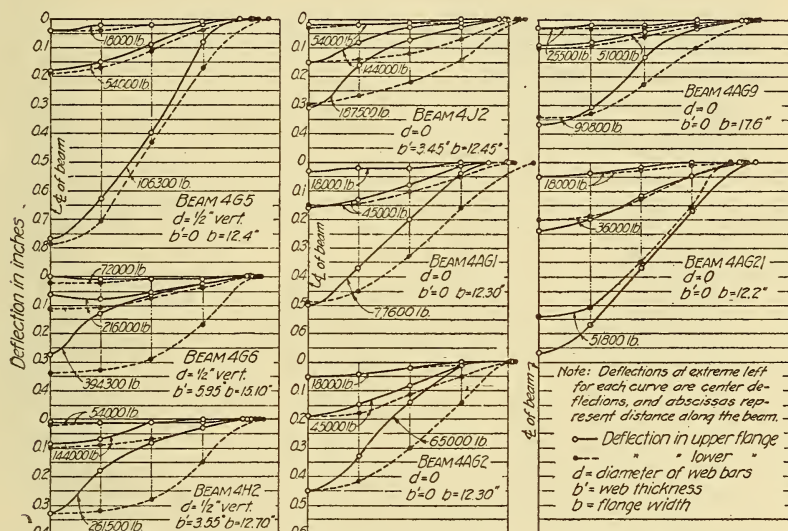 Deflection in inches
0
0.1
0.2
0.3
0.4
0.5
0.6
0.7
0.8
18000 lb.
54000 lb.
106300 lb.
℄ of beam
BEAM 4G5
d=1/2" vert.
b'=0 b=12.4"
0
0.1
0.2
0.3
0.4
72000 lb.
216000 lb.
394300 lb.
BEAM 4G6
d=1/2" vert.
b'=5.95" b=15.10"
0
0.1
0.2
0.3
0.4
54000 lb.
144000 lb.
261500 lb.
BEAM 4H2
d=1/2" vert.
b'=3.55" b=12.70"
0
0.1
0.2
0.3
0.4
54000 lb.
144000 lb.
187500 lb.
BEAM 4J2
d=0
b'=3.45" b=12.45"
0
0.1
0.2
0.3
0.4
0.5
0.6
18000 lb.
45000 lb.
77600 lb.
℄ of beam
BEAM 4AG1
d=0
b'=0 b=12.30"
0
0.1
0.2
0.3
0.4
0.5
0.6
18000 lb.
45000 lb.
65000 lb.
BEAM 4AG2
d=0
b'=0 b=12.30"
0
0.1
0.2
0.3
0.4
25500 lb.
51000 lb.
90800 lb.
BEAM 4AG9
d=0
b'=0 b=17.6"
0
0.1
0.2
0.3
0.4
0.5
0.6
0.7
18000 lb.
36000 lb.
51800 lb.
℄ of beam
BEAM 4AG21
d=0
b'=0 b=12.2"
Note: Deflections at extreme left
for each curve are center de-
flections, and abscissas rep-
resent distance along the beam.
Deflection in upper flange
" " lower "
d = diameter of web bars
b' = web thickness
b = flange width